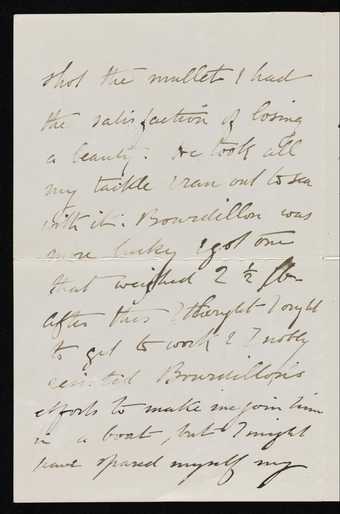 shot the mullet I had
the satisfaction of losing
a beauty. He took all
my tackle & ran out to sea
with it. Bourdillon was
more lucky & got one
that weighed 2 ½ lb.
After this I thought I ought
to get to work & I nobly
resisted Bourdillon's
efforts to make me join him
in a boat, but I might
have spared myself my